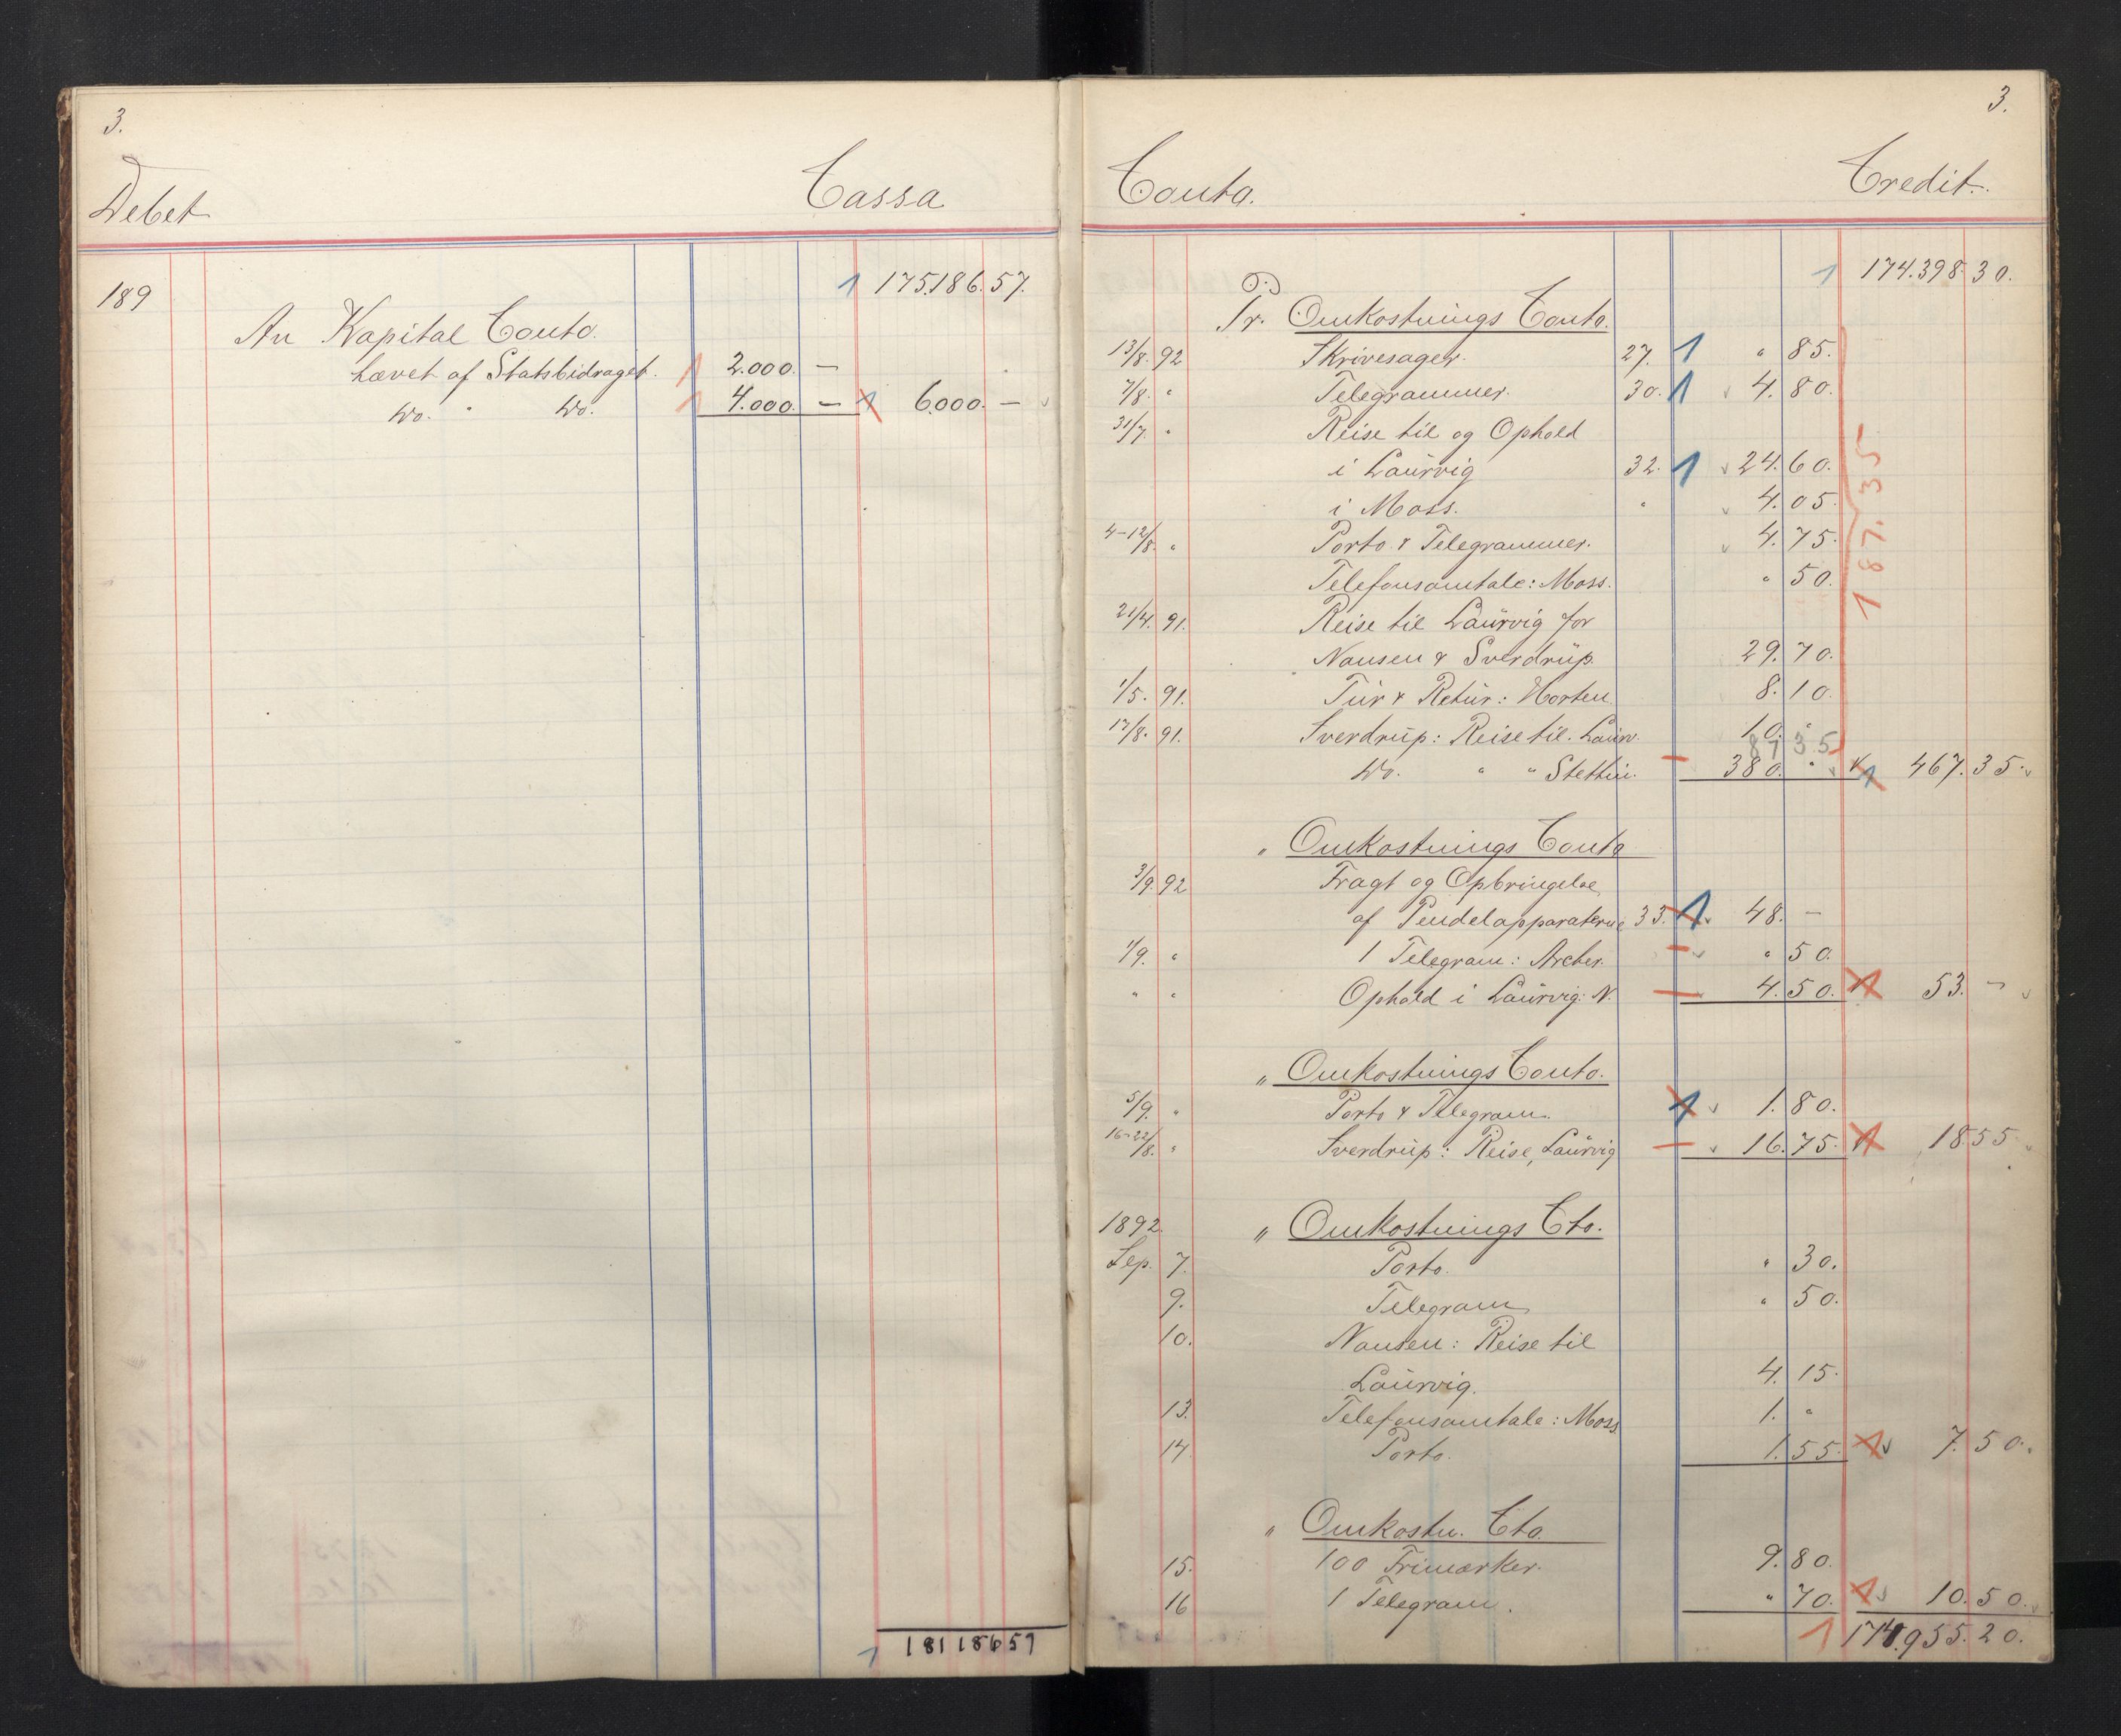 3.
Debet Cassa
189 175.186.57.
An Kapital Conto.
hævet af Statsbidraget. 2.000. —
Do. " Do. 4.000. — 6.000. —
181186.57
3.
Conto. Credit.
174.398.30.
Pr. Omkostnings Conto.
13/8. 92 Skrivesager. 27. " 85.
7/8. " Telegrammer. 30. 4.80.
31/7. " Reise til og Ophold
i Laurvig 32. 24.60.
i Moss. " 4.05.
4-12/8. " Porto & Telegrammer. 4.75.
Telefonsamtale: Moss. " 50.
187.35
21/4. 91. Reise til Laurvig for
Nansen & Sverdrup. 29.70.
1/5. 91. Tur & Retur: Horten. 8.10.
17/8. 91. Sverdrup: Reise til Laurv. 10. "
87 35
Do. " " Stettin. 380. " 467.35.
" Omkostnings Conto
3/9. 92 Fragt og Opbringelse
af Pendelapparaterne 33. 48. —
1/9. " 1 Telegram: Archer. " 50.
" " Ophold i Laurvig: N. 4.50. 53. —
" Omkostnings Conto.
5/9. " Porto & Telegram. 1.80.
16-22/8. " Sverdrup: Reise, Laurvig 16.75. 18.55.
1892. " Omkostnings Cto.
Sep. 7. Porto. " 30.
9. Telegram " 50.
10. Nansen: Reise til
Laurvig. 4.15.
13. Telefonsamtale: Moss. 1. "
14 Porto. 1.55. 7.50.
" Omkostn. Cto.
15. 100 Frimærker. 9.80.
16 1 Telegram. " 70. 10.50.
174.955.20.